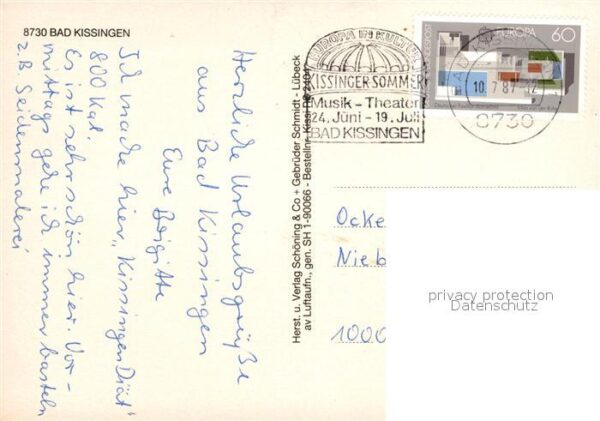 8730 BAD KISSINGEN
Herzliche Urlaubsgrüße
aus Bad Kissingen
Eure Brigitte
Ich mache hier „Kissingen Diät"
800 Kal.
Es ist sehr schön hier. Vor-
mittags gehe ich immer basteln
z.B. Seidenmalerei
Herst. u. Verlag Schöning & Co + Gebrüder Schmidt - Lübeck
av Luftaufn., gen. SH 1-90066 - Bestellnr. Kissi
EUROPA IN KULTUR
KISSINGER SOMMER
Musik - Theater
24. Juni - 19. Juli
BAD KISSINGEN
10. 7. 87 - 12
8730
EUROPA 60
Ocke
Nieb
1000
privacy protection
Datenschutz